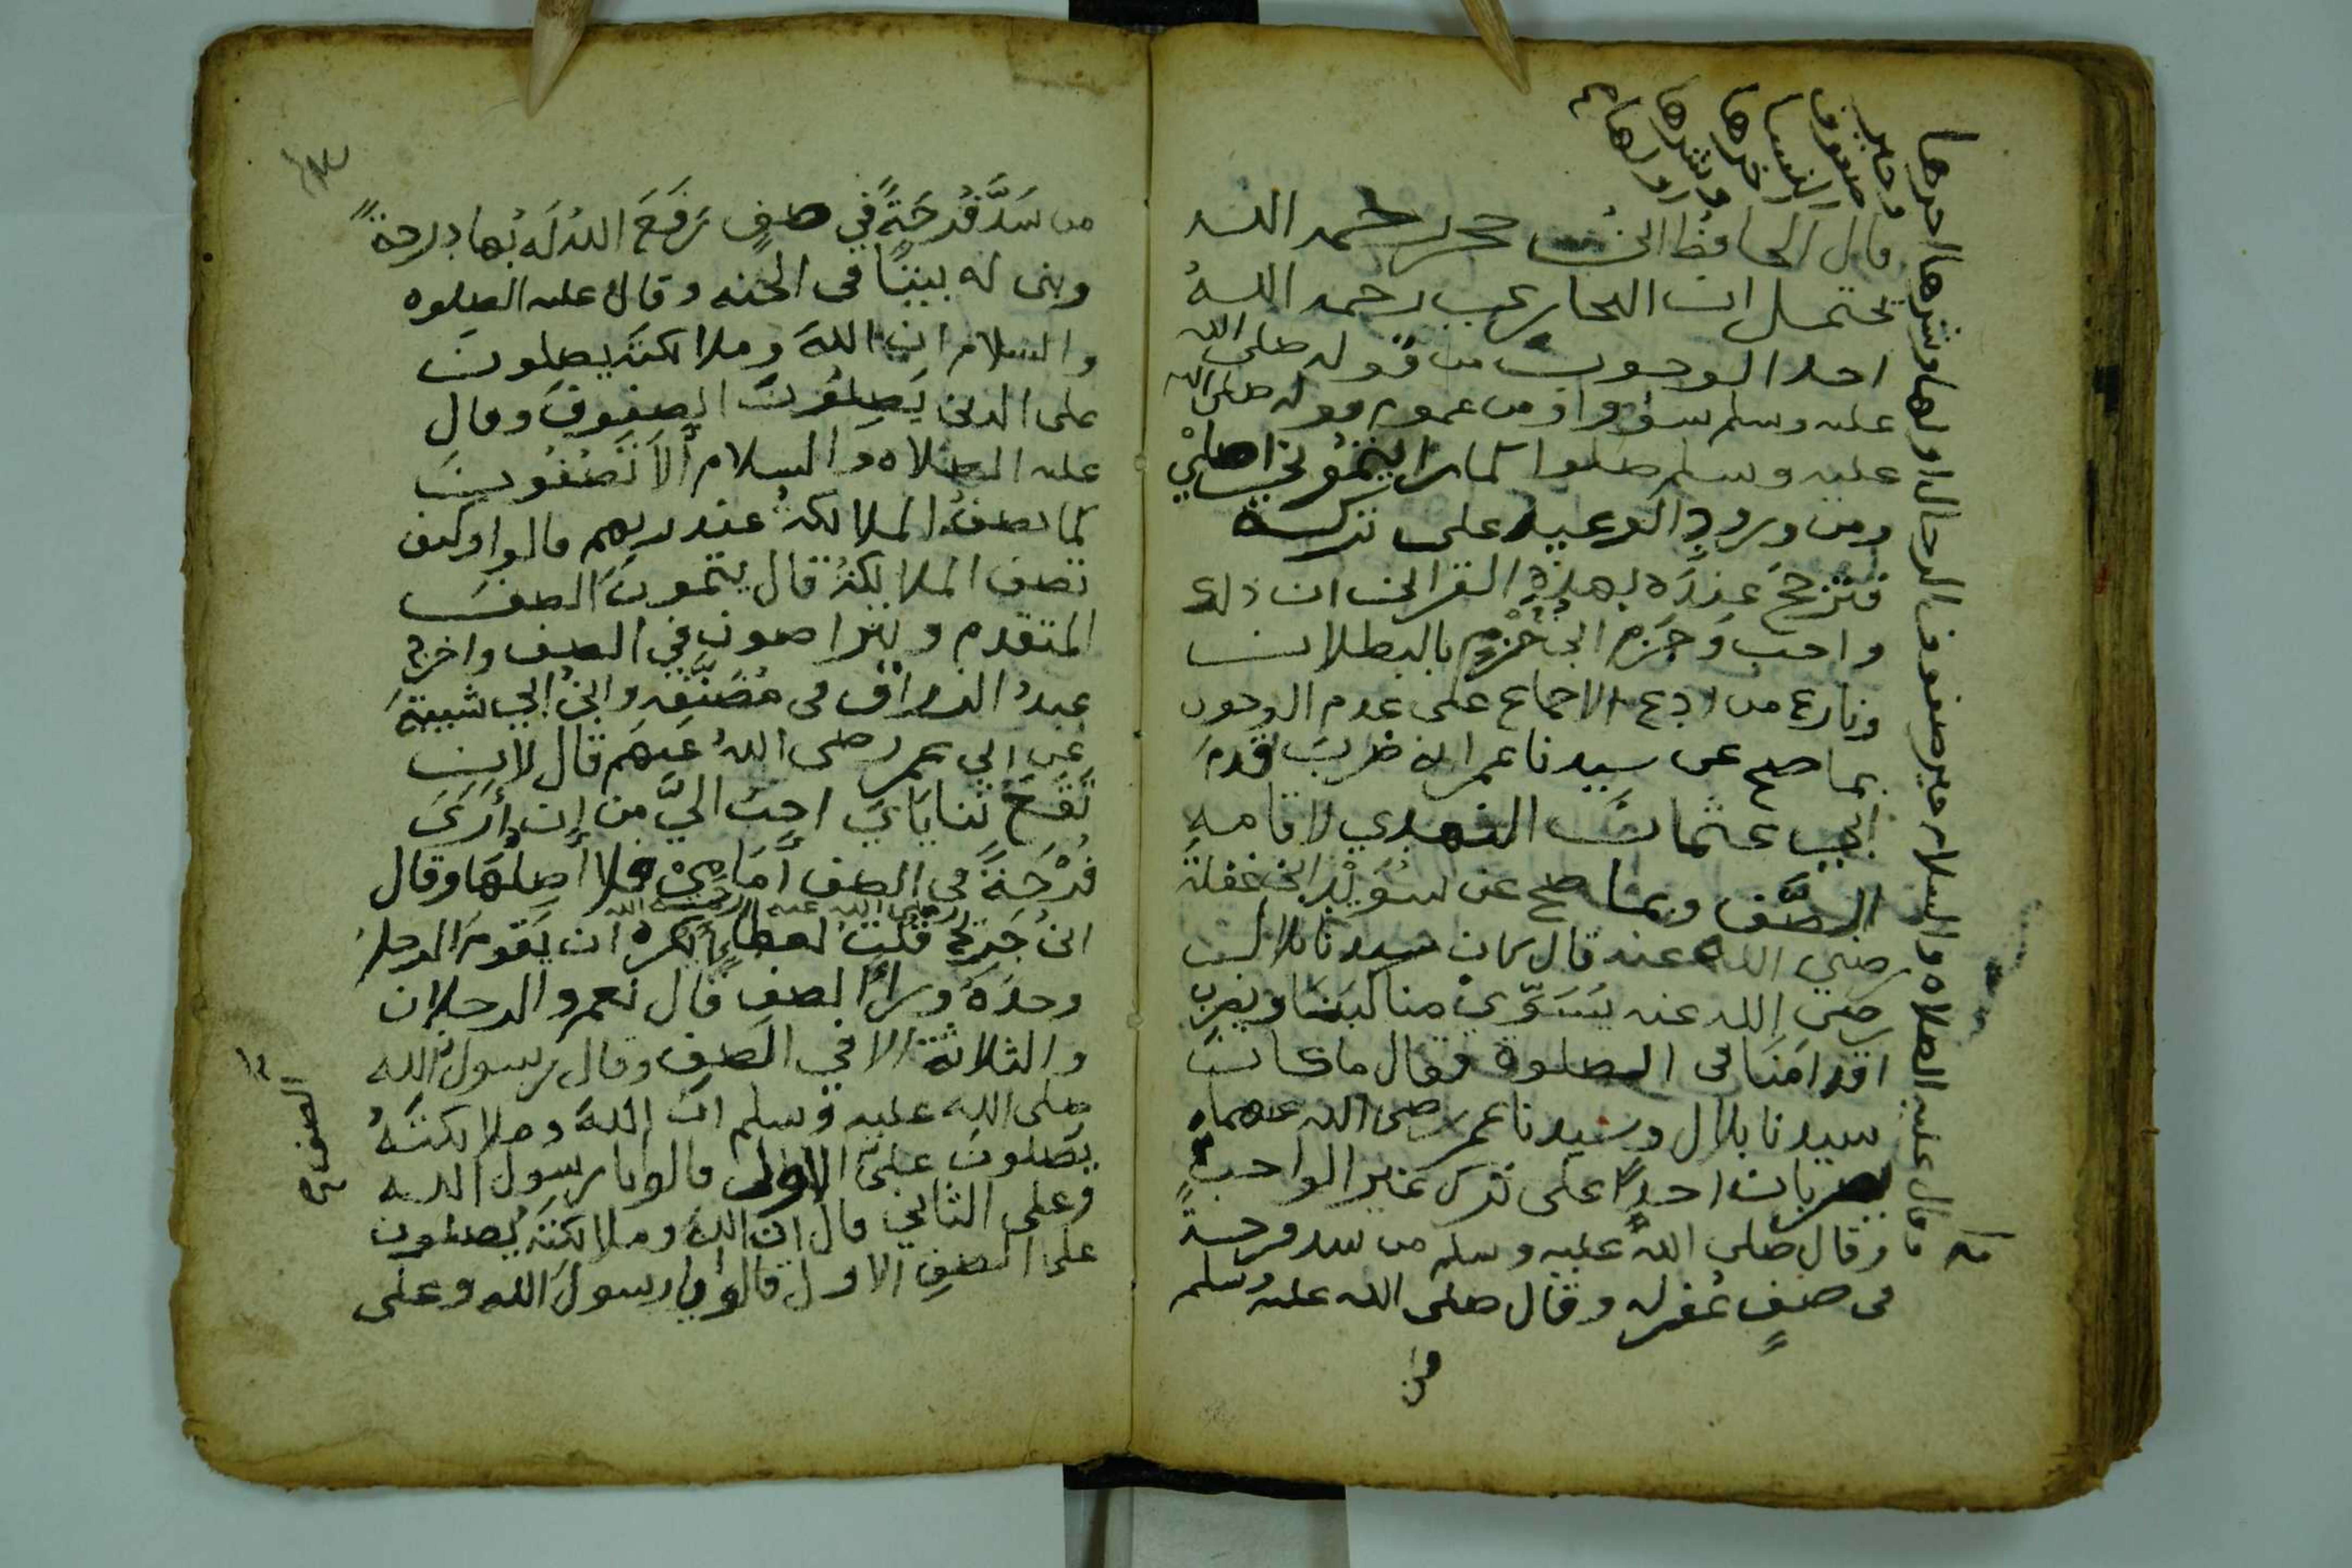 قال الحافظ ابن حجر رحمه الله
يحتمل ان البخاري رحمه الله
اخد الوجوب من قوله صلى الله
عليه وسلم سووا او من عموم قوله صلى الله
عليه وسلم صلوا كما رايتموني اصلي
ومن ورود الوعيد على تركه
فترجح عنده بهذه القراين ان ذلك
واجب وجزم ابن حزم بالبطلان
ونازع من ادعى الاجماع على عدم الوجوب
بما صح عن سيدنا عمر انه ضرب قدم
ابي عثمان النهدي لاقامة
الصف وبما صح عن سويد ابن غفلة
رضي الله عنه قال كان سيدنا بلال
رضي الله عنه يسوي مناكبنا ويضرب
اقدامنا في الصلوة فقال ما كان
سيدنا بلال وسيدنا عمر رضي الله عنهما
يضربان احدا على ترك غير الواجب
وقال صلى الله عليه وسلم من سد فرجة
في صف غفر له وقال صلى الله عليه وسلم
من
وقال عليه الصلاه والسلام خير صفوف الرجال اولها وشرها اخرها
وخير
صفوف
النسا
اخرها
وشرها
اولها
من سَدَّ فُرجَةً في صفٍ رَفَعَ الله لَه بها درجةً
وبنى له بيتًا في الجنه وقال عليه الصلوه
والسلام ان اللهَ وملائكته يصلون
على الذين يَصِلُونَ الصفوفَ وقال
عليه الصلاه والسلام أَلاَ تَصُفُّونَ
كما تصفُ الملائكةُ عند ربهم قالوا وكيف
تصف الملائكةُ قال يتمونَ الصفَ
المتقدم ويتراصون في الصف واخرج
عبدُ الرزاق في مُصَنَّفِه وابنُ ابي شيبةَ
عن ابي عمر رضى اللهُ عنهم قال لان
تَقَعَ ثناياي احب اليَّ من ان أرَى
فُرْجَةً في الصف أَمَامِي فلا أَصِلُهَا وقال
ابنُ جريج قلت لعطا ايكره ان يَقومَ الرجلُ
وحدَهُ ورأ الصف قال نعم والرجلان
والثلاثة الا في الصف وقال رسول الله
صلى الله عليه وسلم ان اللهَ وملائكتَهُ
يصلون على الاول قالوا يا رسول الله
وعلى الثاني قال ان الله وملائكته يصلون
على الصف الاول قالوا يا رسول الله وعلى
الصف